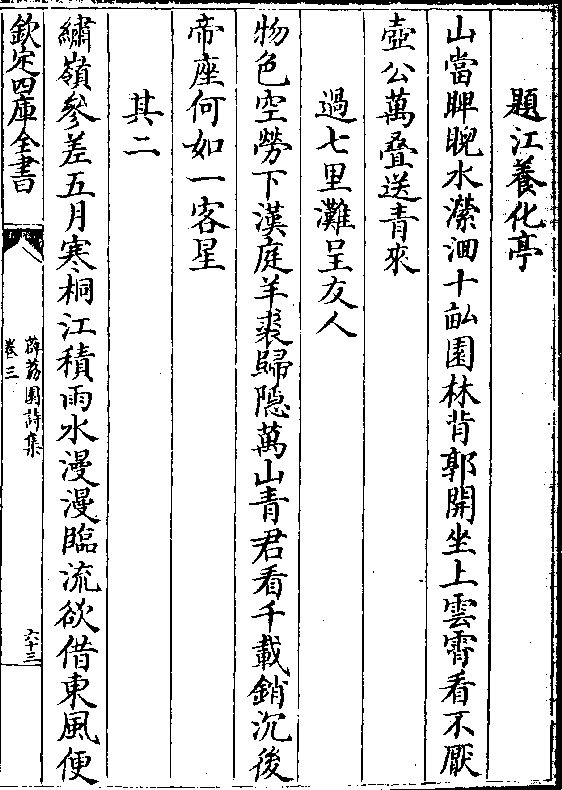 題江養化亭
山當睥睨水瀠洄十畝園林背郭開坐上雲霄看不厭
壺公萬疊送青來
過七里灘呈友人
物色空勞下漢庭羊裘歸隱萬山青君看千載銷沉後
帝座何如一客星
其二
繡嶺參差五月寒桐江積雨水漫漫臨流欲借東風便
欽定四庫全書
薜荔園詩集
卷三
六十三